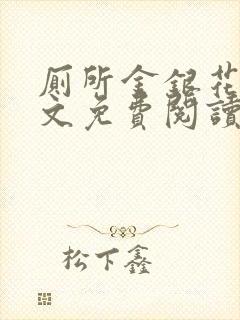 厕所金銀花
文免費閱讀
松下鑫